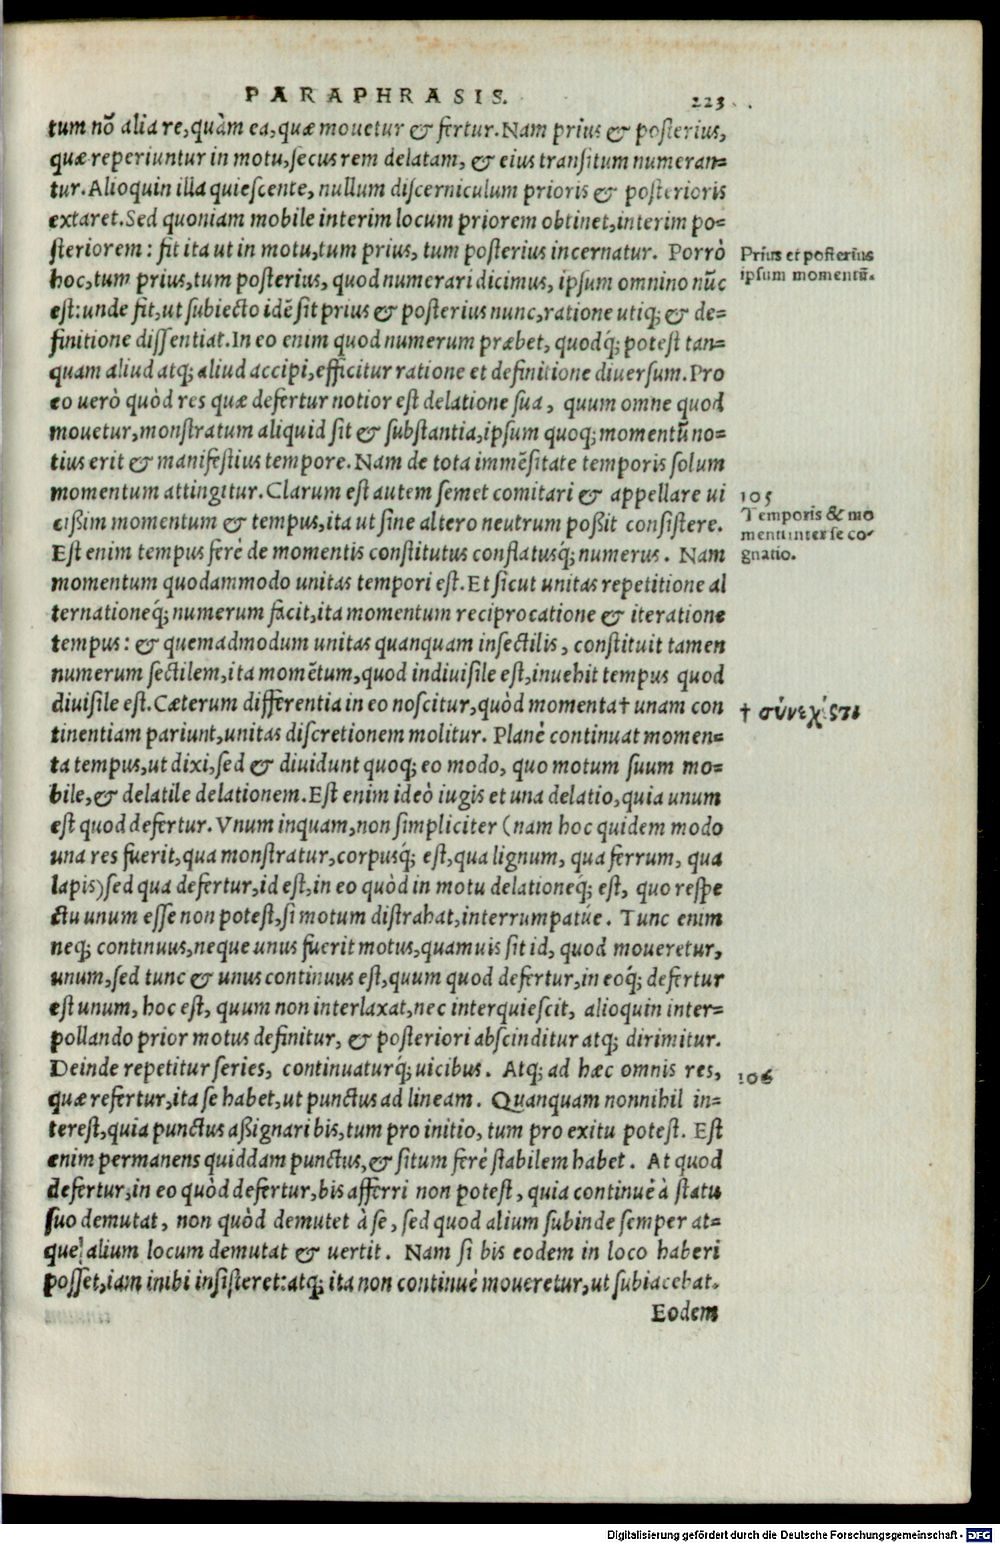 PARAPHRASIS. 223
tum nõ alia re, quàm ea, quæ mouetur & fertur. Nam prius & posterius,
quæ reperiuntur in motu, secus rem delatam, & eius transitum numeran=
tur. Alioquin illa quiescente, nullum discerniculum prioris & posterioris
extaret. Sed quoniam mobile interim locum priorem obtinet, interim po=
steriorem: fit ita ut in motu, tum prius, tum posterius incernatur. Porrò
Prius et posterius
hoc, tum prius, tum posterius, quod numerari dicimus, ipsum omnino nũc
ipsum momentũ.
est: unde fit, ut subiecto idẽ sit prius & posterius nunc, ratione utiq; & de=
finitione dissentiat. In eo enim quod numerum præbet, quodq́; potest tan=
quam aliud atq; aliud accipi, efficitur ratione et definitione diuersum. Pro
eo uerò quòd res quæ defertur notior est delatione sua, quum omne quod
mouetur, monstratum aliquid sit & substantia, ipsum quoq; momentũ no=
tius erit & manifestius tempore. Nam de tota immẽsitate temporis solum
momentum attingitur. Clarum est autem semet comitari & appellare ui
105
cißim momentum & tempus, ita ut sine altero neutrum poßit consistere.
Temporis & mo
menti inter se co-
Est enim tempus ferè de momentis constitutus conflatusq́; numerus. Nam
gnatio.
momentum quodammodo unitas tempori est. Et sicut unitas repetitione al
ternationeq́; numerum facit, ita momentum reciprocatione & iteratione
tempus: & quemadmodum unitas quanquam insectilis, constituit tamen
numerum sectilem, ita momẽtum, quod indiuisile est, inuehit tempus quod
diuisile est. Cæterum differentia in eo noscitur, quòd momenta† unam con
† σύνεχ
tinentiam pariunt, unitas discretionem molitur. Planè continuat momen=
ta tempus, ut dixi, sed & diuidunt quoq; eo modo, quo motum suum mo=
bile, & delatile delationem. Est enim ideò iugis et una delatio, quia unum
est quod defertur. Vnum inquam, non simpliciter (nam hoc quidem modo
una res fuerit, qua monstratur, corpusq́; est, qua lignum, qua ferrum, qua
lapis) sed qua defertur, id est, in eo quòd in motu delationeq; est, quo respe
ctu unum esse non potest, si motum distrahat, interrumpatúe. Tunc enim
neq; continuus, neque unus fuerit motus, quamuis sit id, quod moueretur,
unum, sed tunc & unus continuus est, quum quod defertur, in eoq́; defertur
est unum, hoc est, quum non interlaxat, nec interquiescit, alioquin inter=
pollando prior motus definitur, & posteriori abscinditur atq; dirimitur.
Deinde repetitur series, continuaturq́; uicibus. Atq; ad hæc omnis res,
106
quæ refertur, ita se habet, ut punctus ad lineam. Quanquam nonnihil in=
terest, quia punctus aßignari bis, tum pro initio, tum pro exitu potest. Est
enim permanens quiddam punctus, & situm ferè stabilem habet. At quod
defertur, in eo quòd defertur, bis afferri non potest, quia continuè à statu
suo demutat, non quòd demutet à se, sed quod alium subinde semper at=
que alium locum demutat & uertit. Nam si bis eodem in loco haberi
posset, iam inibi insisteret: atq; ita non continuè moueretur, ut subiacebat.
Eodem
Digitalisierung gefördert durch die Deutsche Forschungsgemeinschaft - DFG